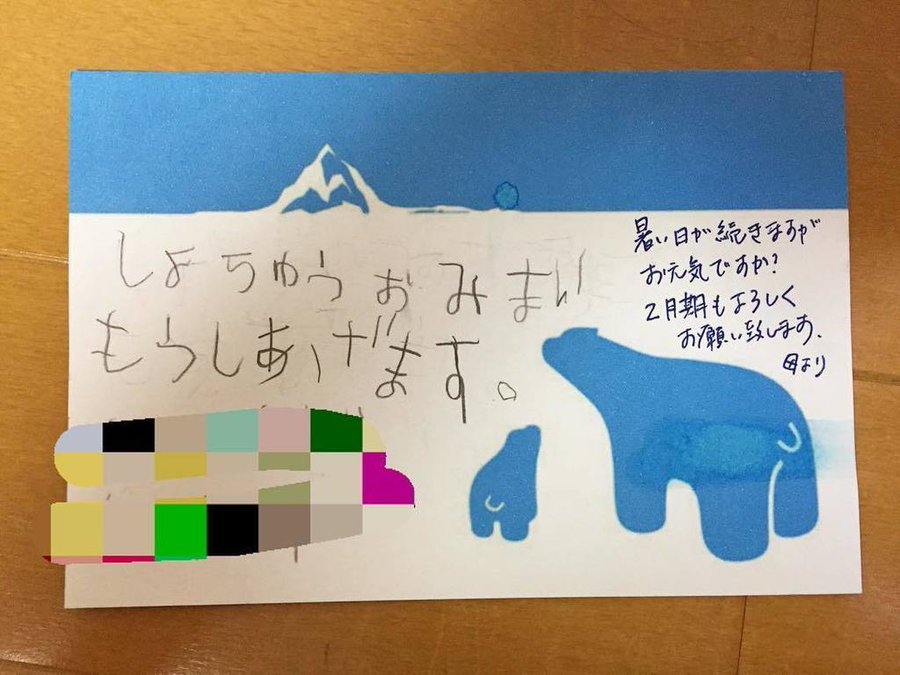 しょちゅうおみまい
もうしあげます。
暑い日が続きますが
お元気ですか?
2月期もよろしく
お願い致します、
母より